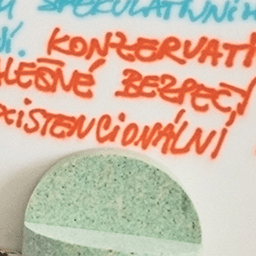 SPEKULATIVNÍH
NÍ. KONZERVATI
LEŠNÉ BEZPEČ
EXISTENCIONÁLNÍ